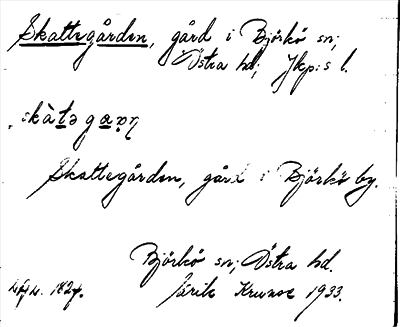 Skattegården, gård i Björkö sn;
Östra hd; Jkp:s l.
skàtəgaṇη
Skattegården, gård i Björkö by.
Björkö sn; Östra hd.
1827. Jarik Krunse 1933.